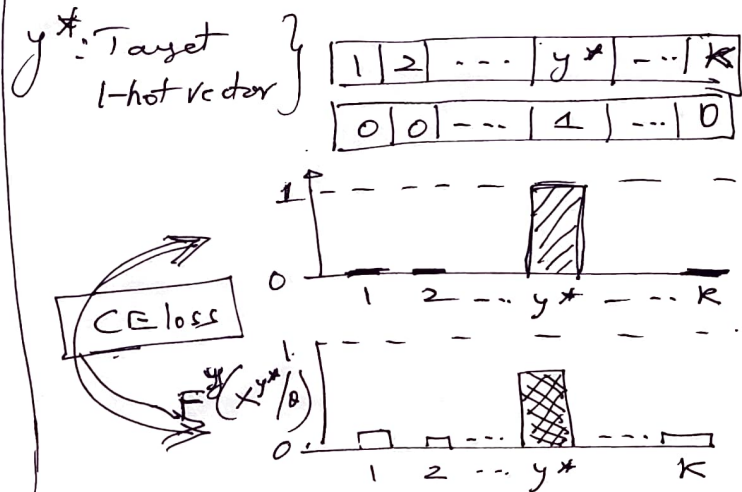 y*: Target
1-hot vector }
1 | 2 | --- | y* | --- | K
0 | 0 | --- | 1 | --- | 0
1
0
1 2 --- y* --- K
CE loss
1
F^y(x^y*/θ)
0
1 2 --- y* --- K